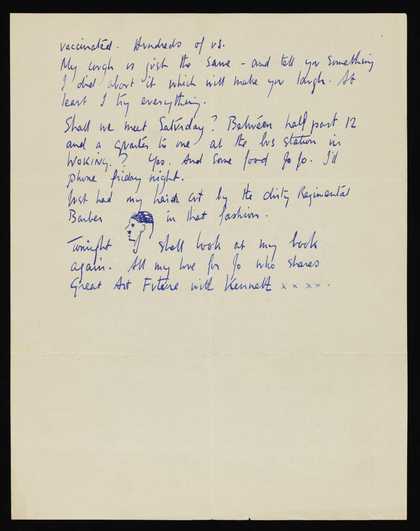 vaccinated. Hundreds of us.
My cough is just the same - and tell you something
I did about it which will make you laugh. At
least I try everything.
Shall we meet Saturday? Between half past 12
and a quarter to one at the bus station in
WOKING? Yes. And some food Jo Jo. I'll
phone friday night.
Just had my hair cut by the dirty Regimental
Barber in that fashion.
Tonight shall look at my book
again. All my love for Jo who shares
Great Art Future with Kenneth x x x x.